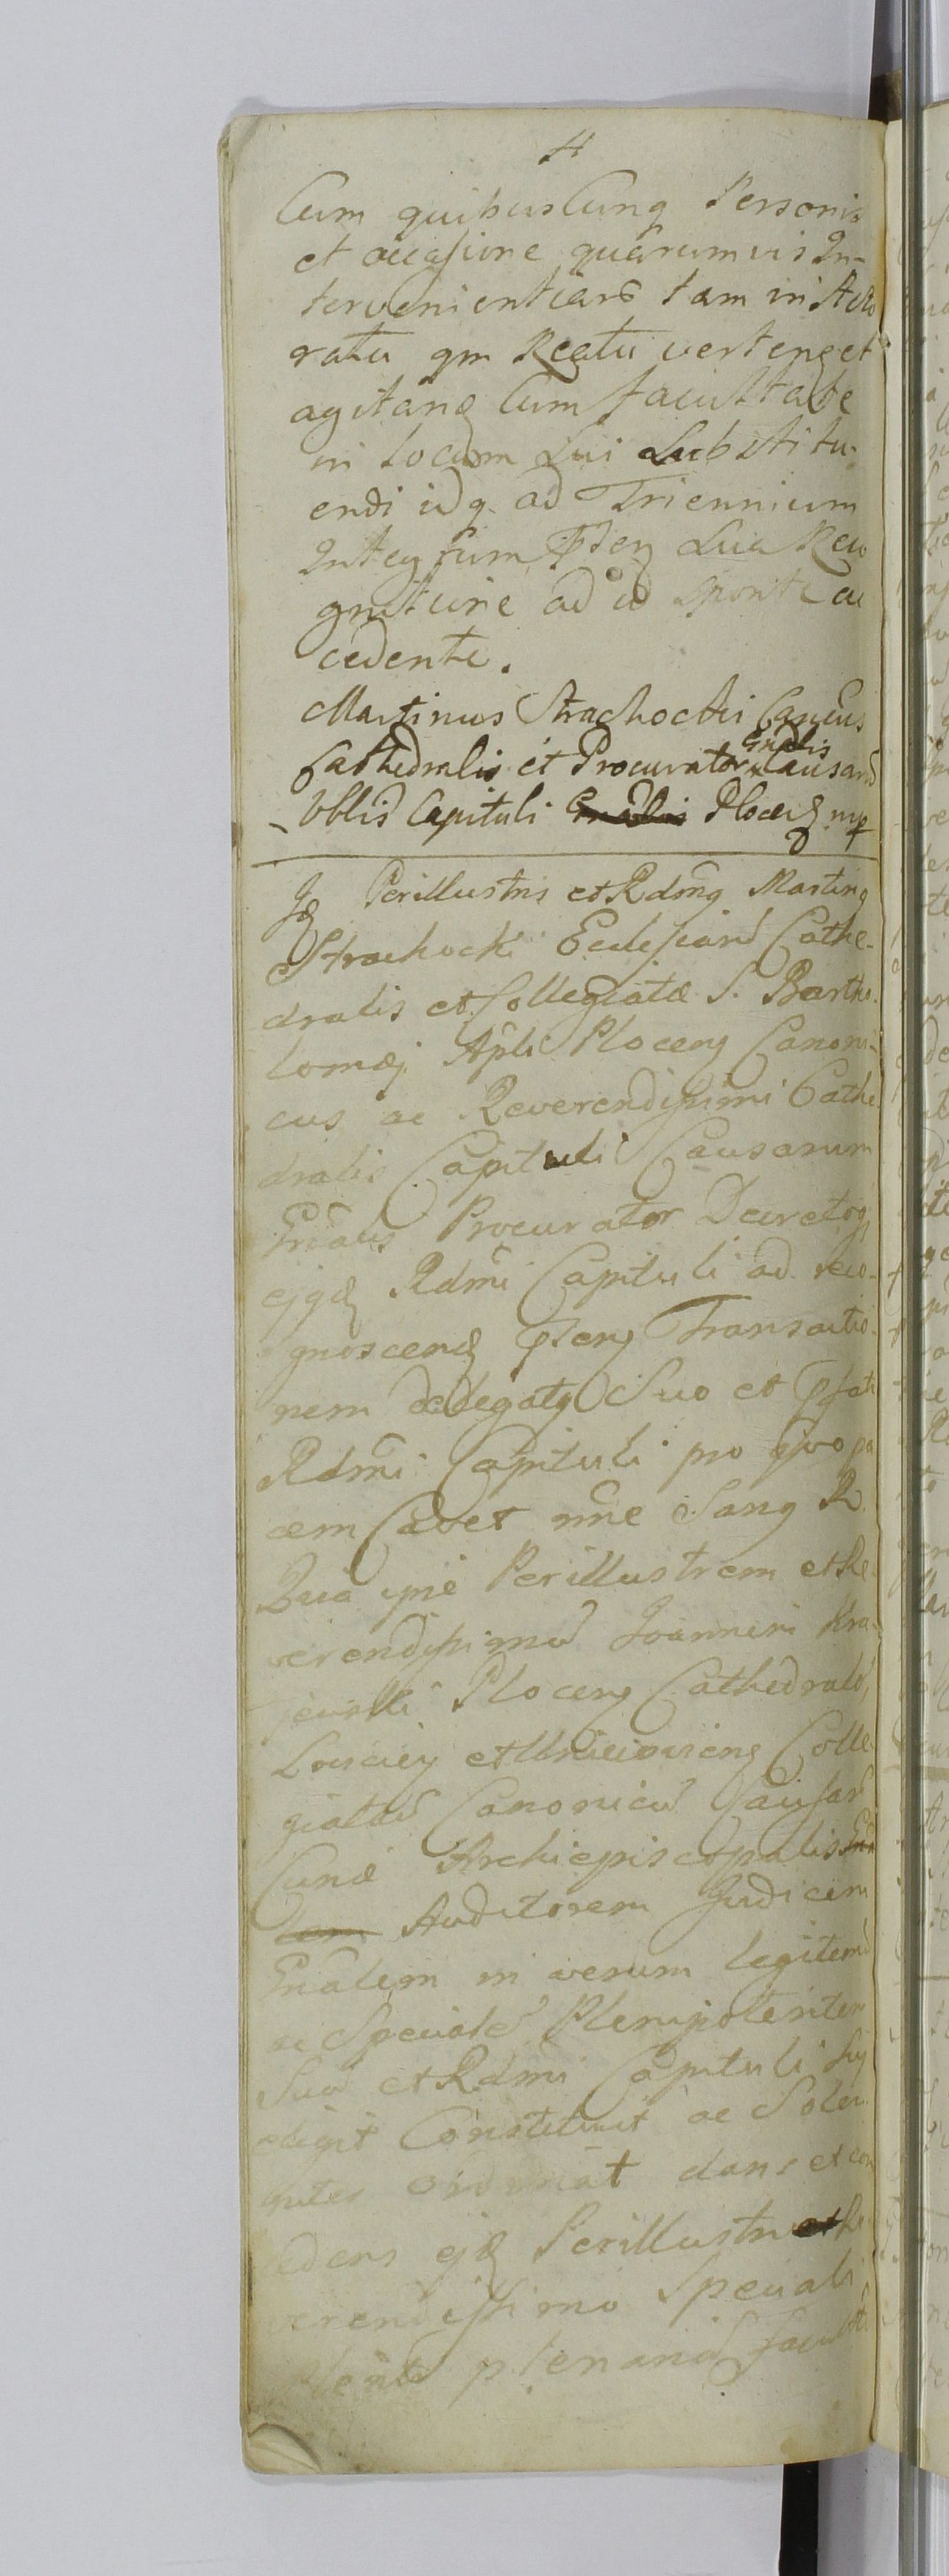 4
Cum quibuscunq Personis
et occasione quarumvis In-
tervenientiarũ tam in Acto
ratu qm Reatu vertenđ et
agitanđ Cum facultate
in locum Sui Substitu-
endi idq. ad Triennium
Integrum Psenʒ Sua Reco
gnitione ad id sponte ac
cedente.
Martinus Strachocki Canćus
Cathedralis et Procurator Gnalis Causarũ
Vblis Capituli Gnalis Plocenʒ mp
Iđ Perillustris et Rdmʒ Martinʒ
Strachocki Ecclesiarũ Cathe-
dralis et Collegiatæ S. Bartho-
lomæj Apli Plocenʒ Canoni-
cus ac Reverendissimi Cathe
dralis Capituli Causarum
Gnalis Procurator Decretoʒ
ejqđ Rdmi Capituli ad reco-
gnoscenđ Psenʒ Transactio-
nem delegatʒ Suo et Pfati
Rdmi Capituli pro quo pa
cem Cavet nne Sanʒ R.
Quia ipse Perillustrem et Re
verendissimũ Joannem Kra-
jewski Plocenʒ Cathedralẽ,
et Collegiatarũ Canonicũ Causarũ
Curiæ Archiepiscopalis
Auditorem Judicem
Gnalem in verum legitimũ
ac Specialẽ Plenipotentem
Suũ et Rdmi Capituli Sui
eligit Constituit ac Solen
niter ordinat dans et con
cedens ejđ Perillustri et Re
verendissimo Speciali
plenariã facultatẽ